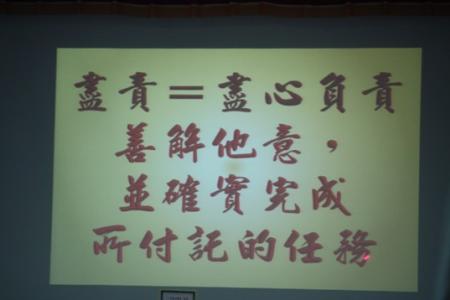 盡責=盡心負責
善解他意，
並確實完成
所付託的任務